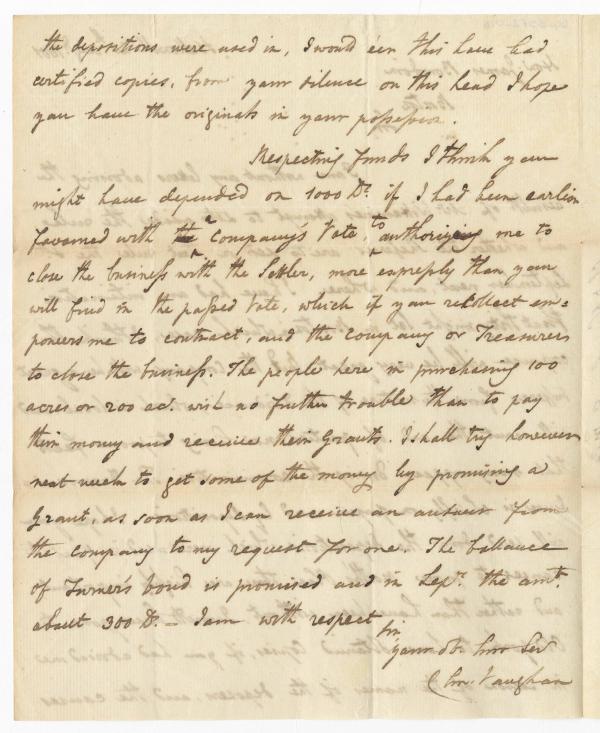 the depositions were used in, I would e'en this have had
certified copies, from your silence on this head I hope
you have the originals in your possession.
Respecting funds I think you
might have depended on 1000 Ds. if I had been earlier
favoured with a Company's Vote, to authorizing me to
close the business with the Settler, more expressly than you
will find in the passed Vote, which if you recollect em=
powers me to contract, and the Company or Treasurer
to close the business. The people here in purchasing 100
acres or 200 ac. wish no further trouble than to pay
their money and receive their Grants. I shall try however
next week to get some of the money by promising a
Grant, as soon as I can receive an answer from
the Company to my request for one. The ballance
of Turner's bond is promised and in Sepr. the amt.
about 300 D. – I am with respect
Sir
your ob. hm Ser
Vaughan